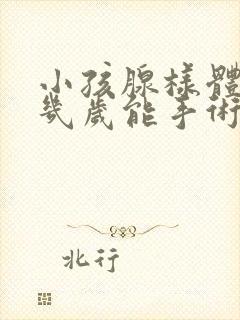 小孩腺樣體
幾歲能手術
北行